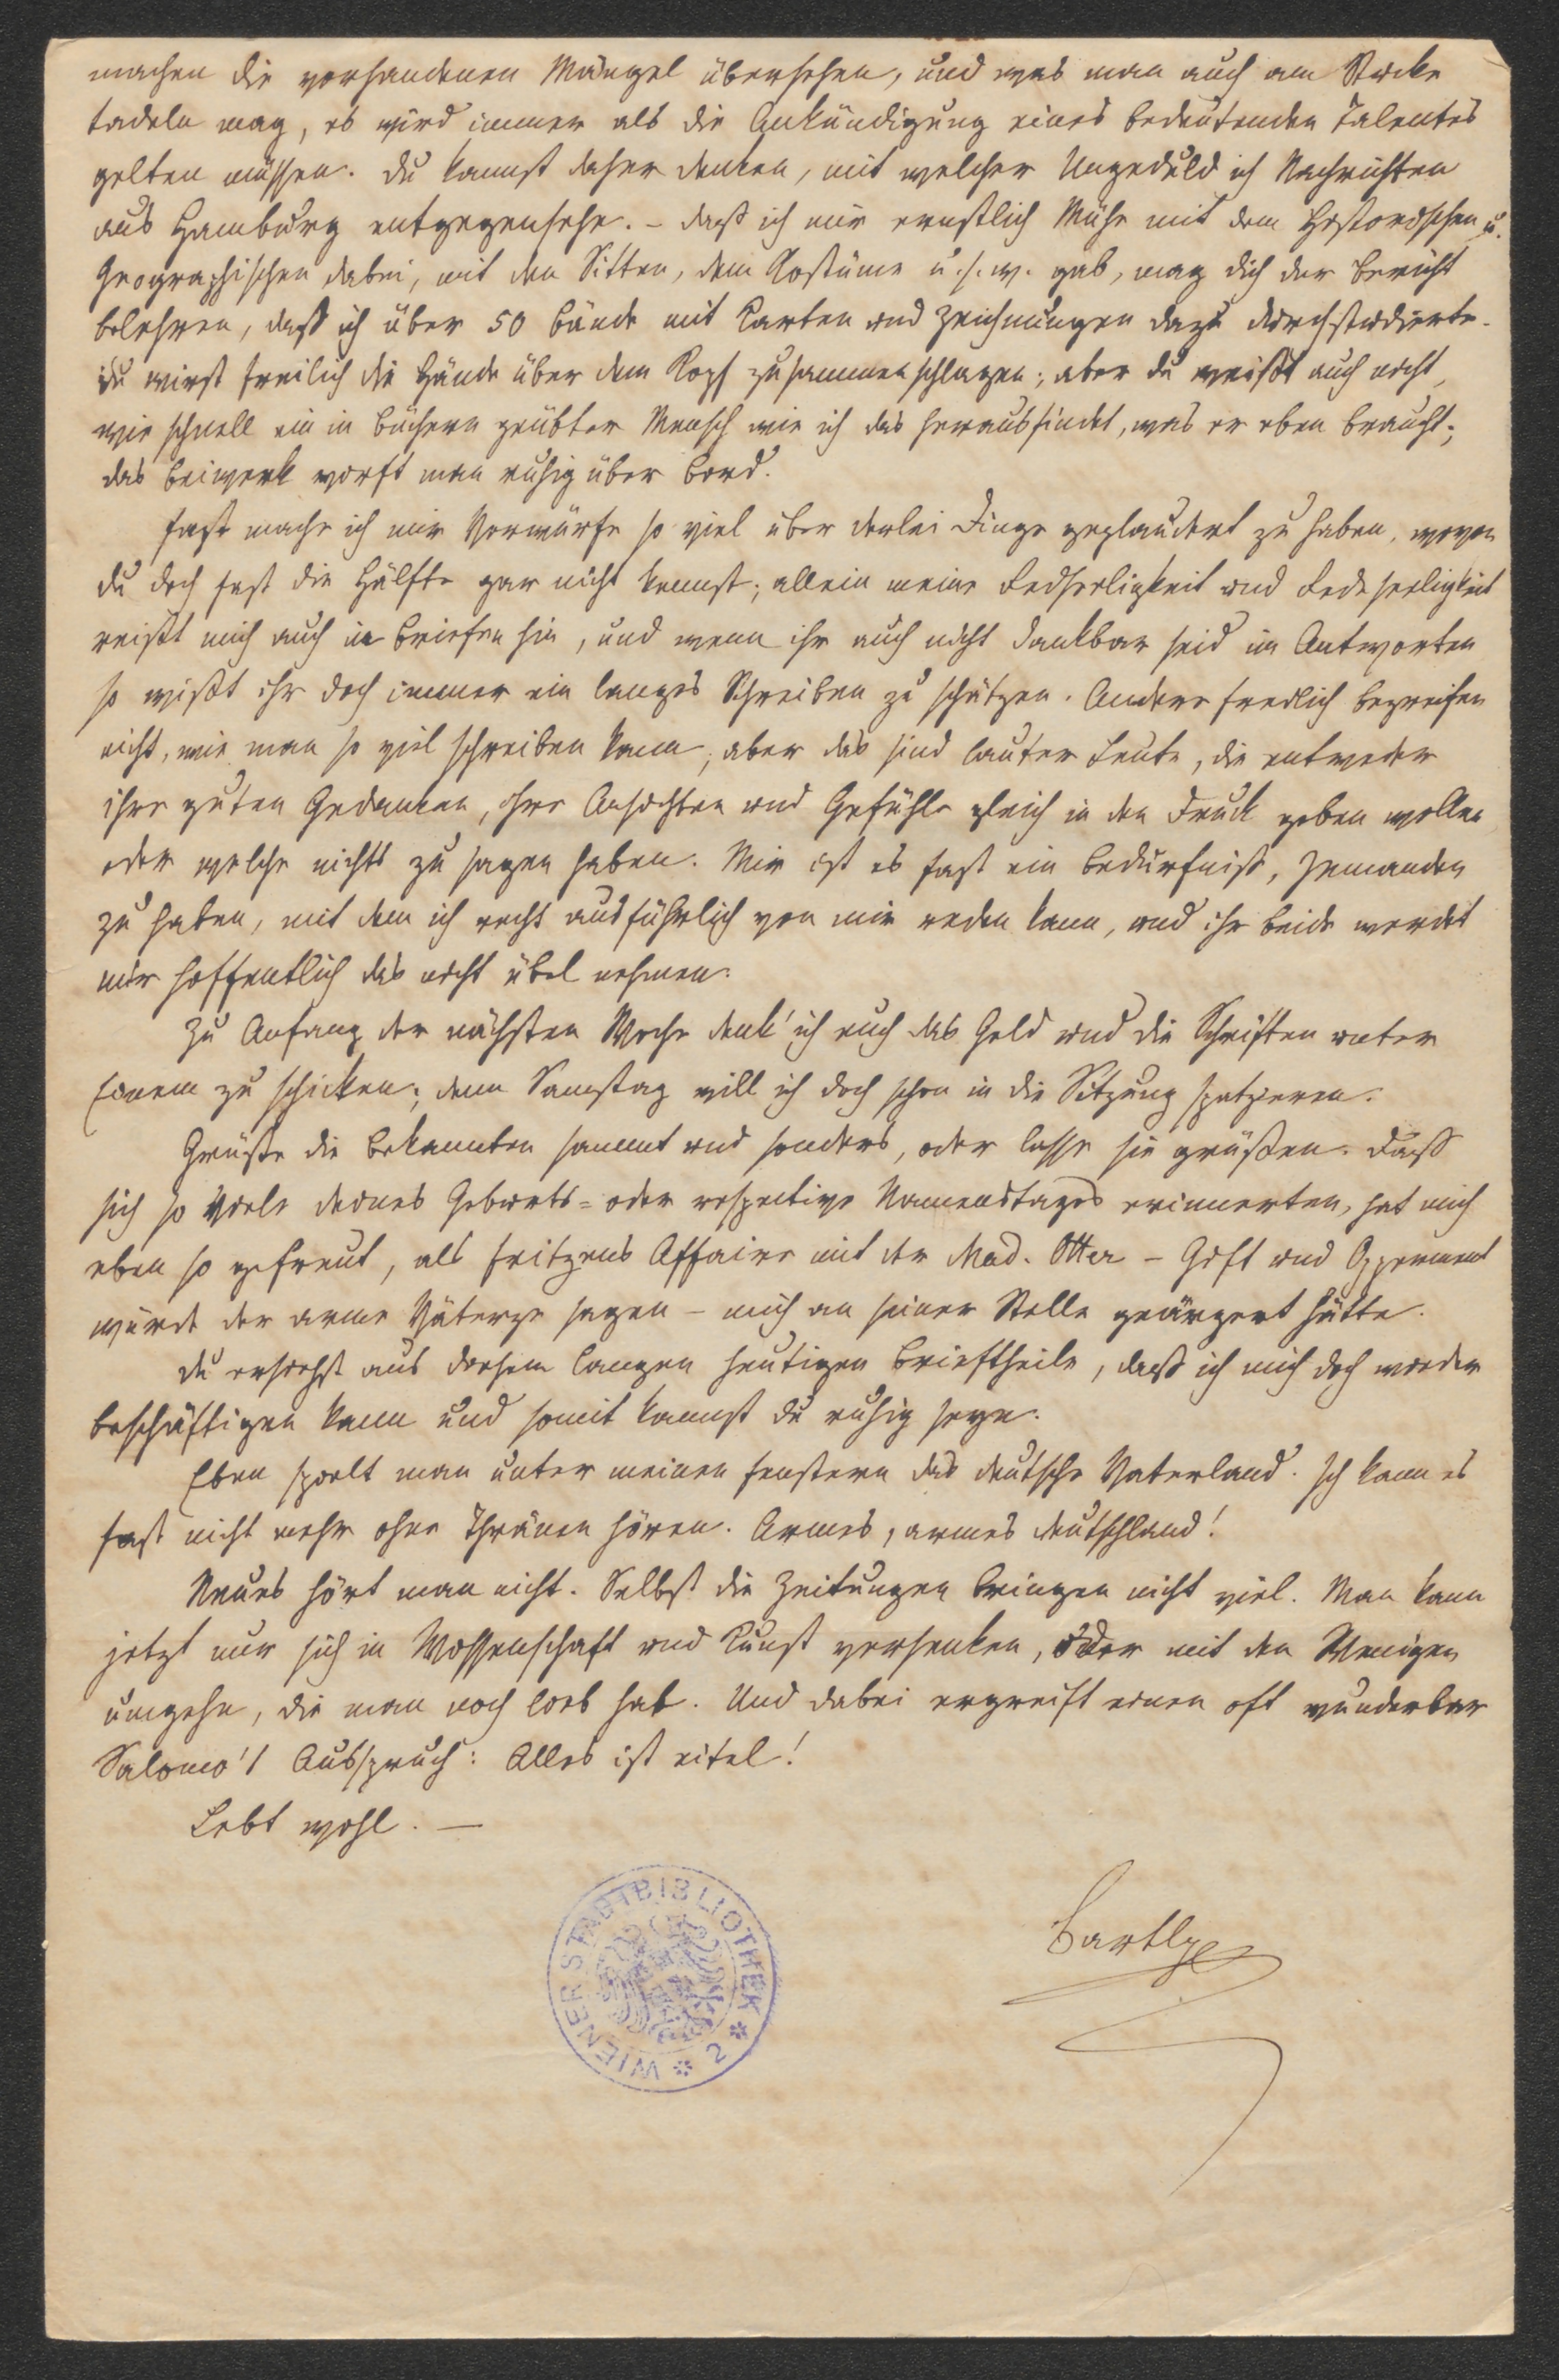 machen die vorhandenen Mängel übersehen, und was man auch am Stücke
tadeln mag, es wird immer als die Ankündigung eines bedeutenden Talentes
gelten müssen. Du kannst daher denken, mit welcher Ungeduld ich Nachrichten
aus Hamburg entgegensehe. – Daß ich mir ernstlich Mühe mit dem Historischen u.
Geographischen dabei, mit den Sitten, dem Kostüme u. s. w. gab, mag dich der Bericht
belehren, daß ich über 50 Bände mit Karten und Zeichnungen dazu durchstudierte.
Du wirst freilich die Hände über dem Kopf zusammenschlagen; aber du weißt auch nicht,
wie schnell ein in Büchern geübter Mensch wie ich das herausfindet, was er eben braucht;
das Beiwerk wirft man ruhig über Bord.
Fast mache ich mir Vorwürfe so viel über derlei Dinge geplaudert zu haben, wovon
du doch fast die Hälfte gar nicht kennst; allein meine Redseeligkeit und Redeseeligkeit
reißt mich auch in Briefen hin, und wenn ihr auch nicht dankbar seid im Antworten
so wißt ihr doch immer ein langes Schreiben zu schätzen. Andere freilich begreifen
nicht, wie man so viel schreiben kann; aber das sind lauter Leute, die entweder
ihre guten Gedanken, ihre Ansichten und Gefühle gleich in den Druck geben wollen
oder welche nichts zu sagen haben. Mir ist es fast ein Bedürfniß, Jemanden
zu haben, mit dem ich recht ausführlich von mir reden kann, und ihr beide werdet
mir hoffentlich das nicht übel nehmen.
Zu Anfang der nächsten Woche denk' ich euch das Geld und die Schriften unter
Einem zu schicken; denn Samstag will ich doch schon in die Sitzung spatzieren.
Grüße die Bekannten sammt und sonders, oder lasse sie grüßen. Daß
sich so Viele deines Geburts- oder respective Namenstages erinnerten, hat mich
eben so gefreut, als Fritzens Affaire mit der Mad. Otter – Gift und Opperment
würde der arme Väterge sagen – mich an seiner Stelle geärgert hätte.
Du ersiehst aus diesem langen heutigen Brieftheile, daß ich mich doch wieder
beschäftigen kann und somit kannst du ruhig seyn.
Eben spielt man unter meinen Fenstern das deutsche Vaterland. Ich kann es
fast nicht mehr ohne Thränen hören. Armes, armes Deutschland!
Neues hört man nicht. Selbst die Zeitungen bringen nicht viel. Man kann
jetzt nur sich in Wissenschaft und Kunst versenken, oder mit den Wenigen
umgehn, die man noch lieb hat. Und dabei ergreift einen oft wunderbar
Salomo's Ausspruch: Alles ist eitel!
Lebt wohl. –
WIENER STADTBIBLIOTHEK * 2 *